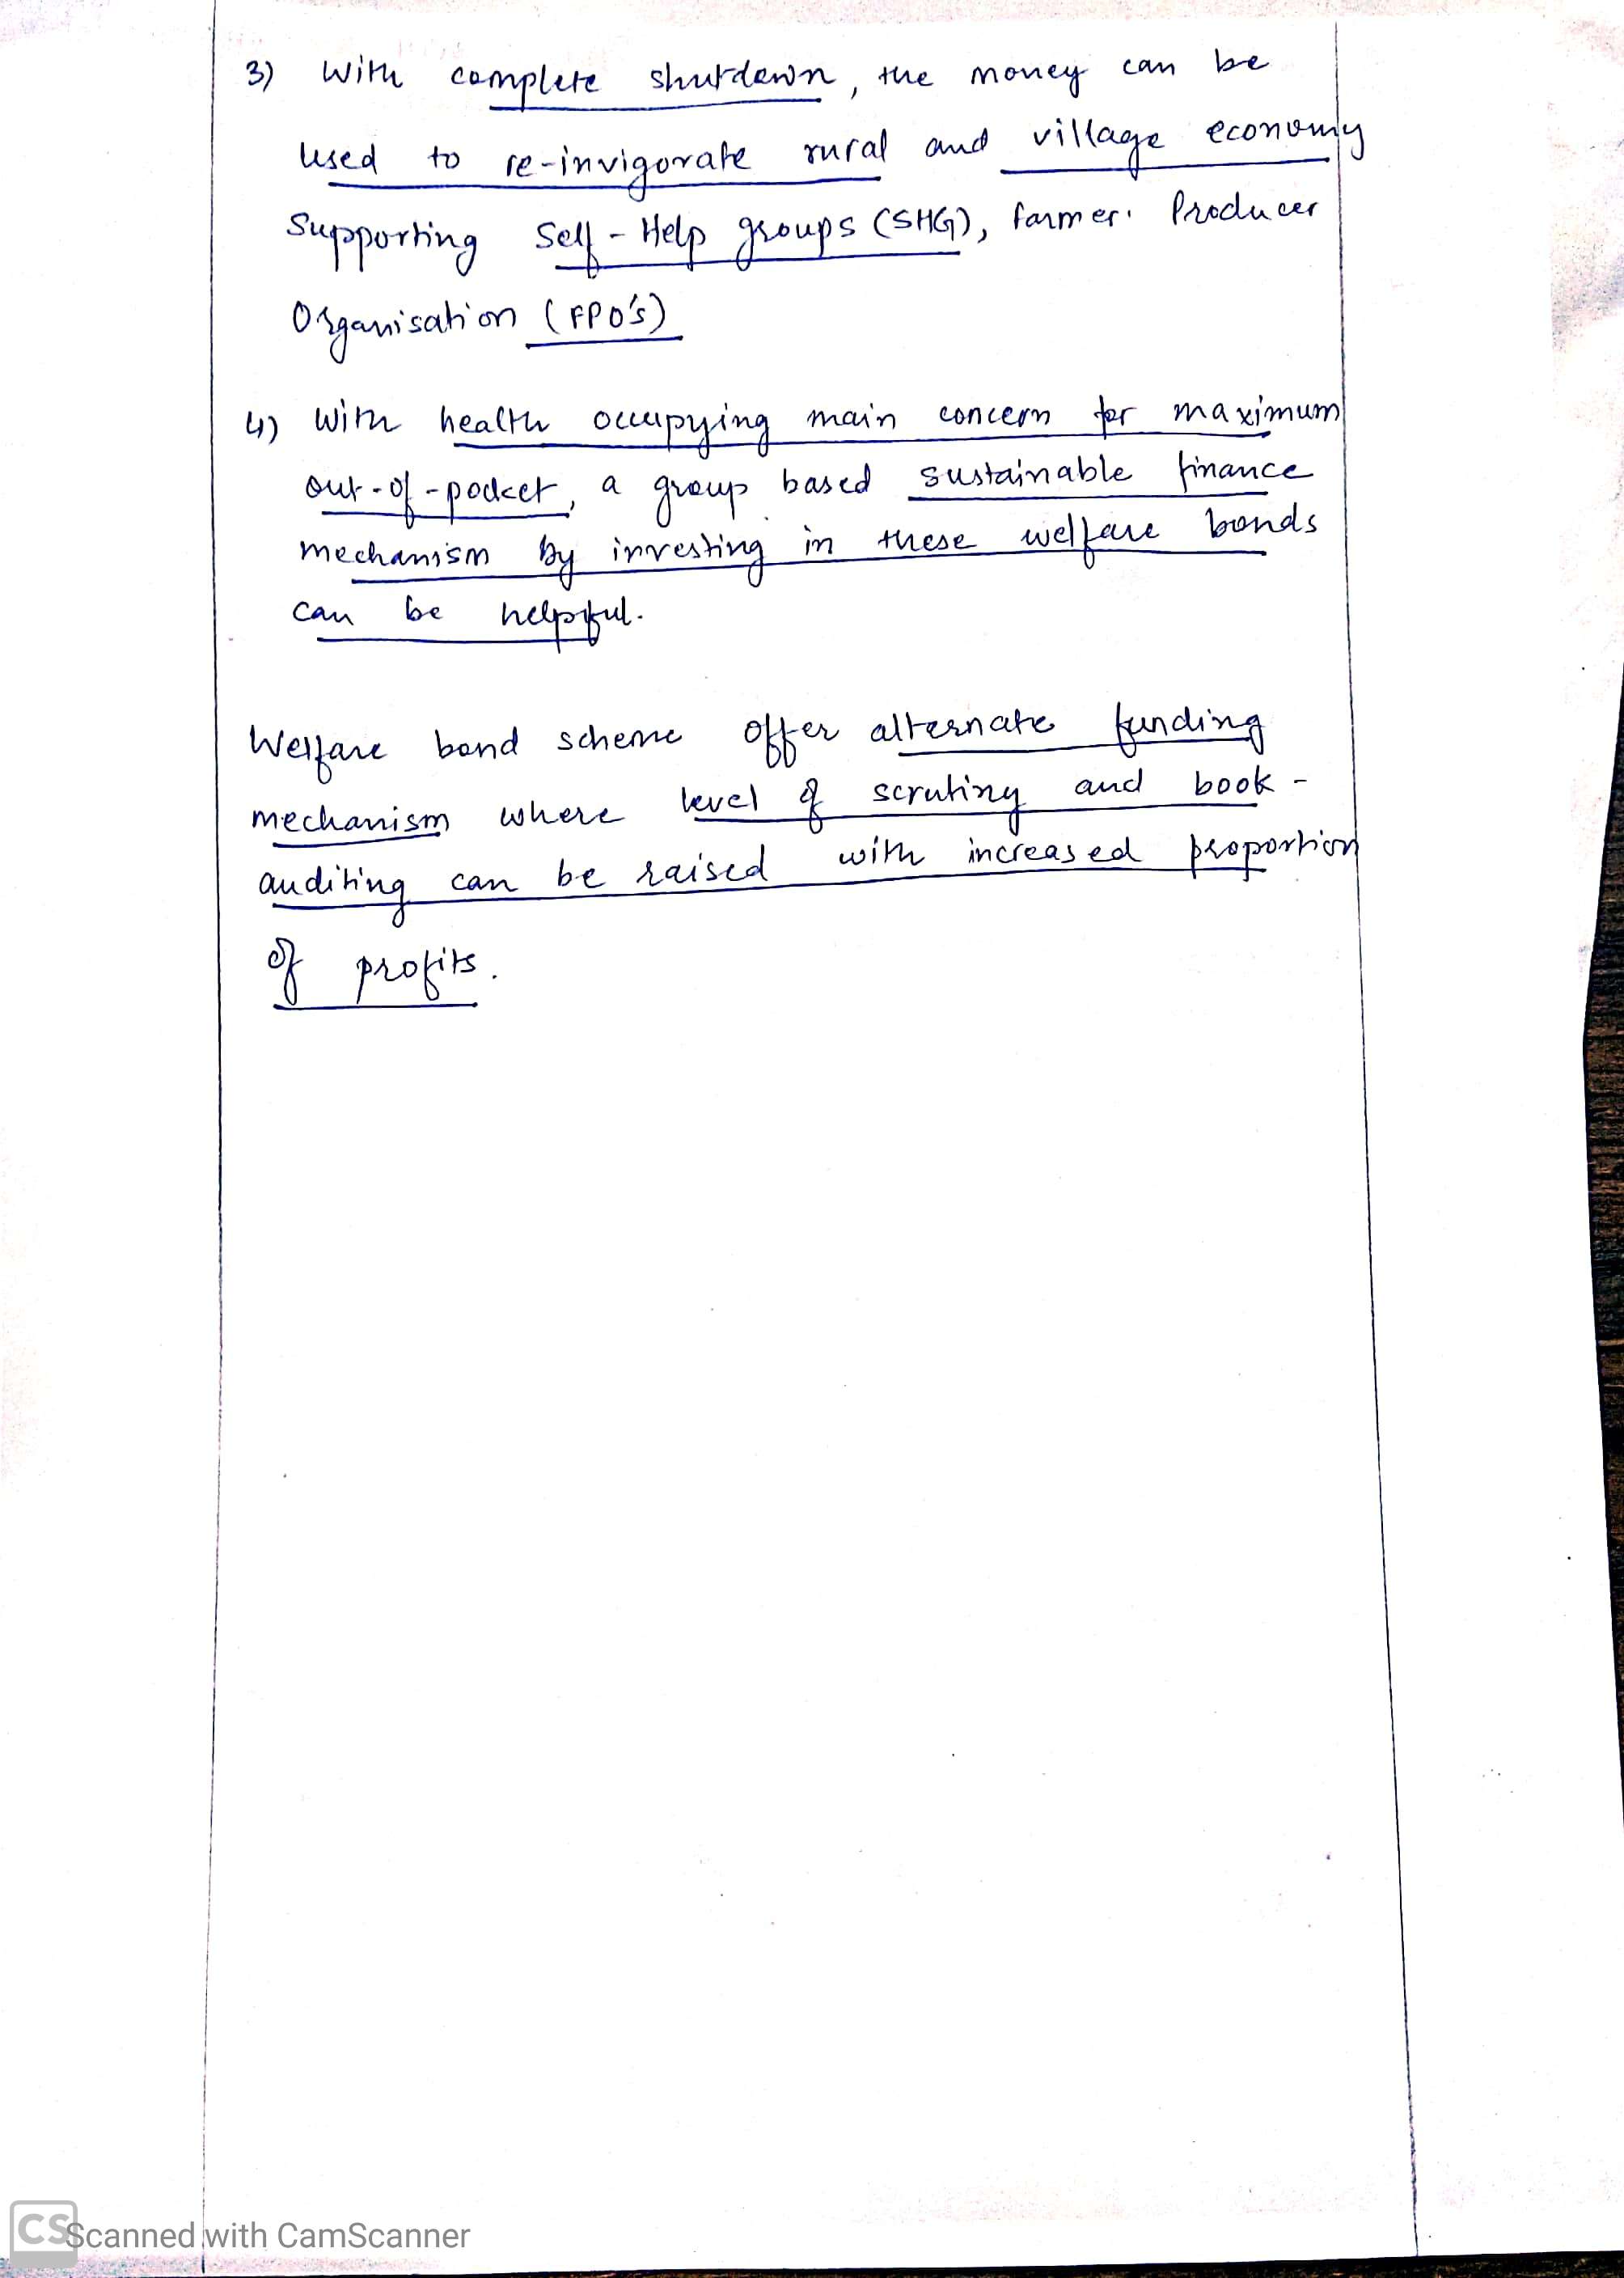 3) With complete shutdown, the money can be
used to re-invigorate rural and village economy
Supporting Self-Help groups (SHG), Farmer Producer
Organisation (FPO's)
4) With health occupying main concern for maximum
out-of-pocket, a group based sustainable finance
mechanism by investing in these welfare bonds
can be helpful.
Welfare bond scheme offer alternate funding
mechanism where level of scrutiny and book-
auditing can be raised with increased proportion
of profits.
CS Scanned with CamScanner